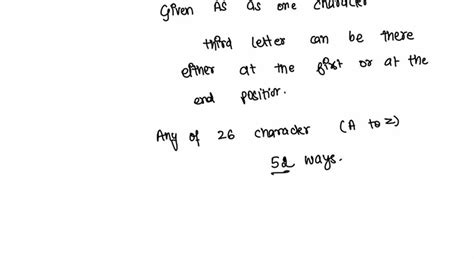 Given As as one character
third letter can be there
either at the first or at the
end position.
Any of 26 character (A to Z)
52 ways.